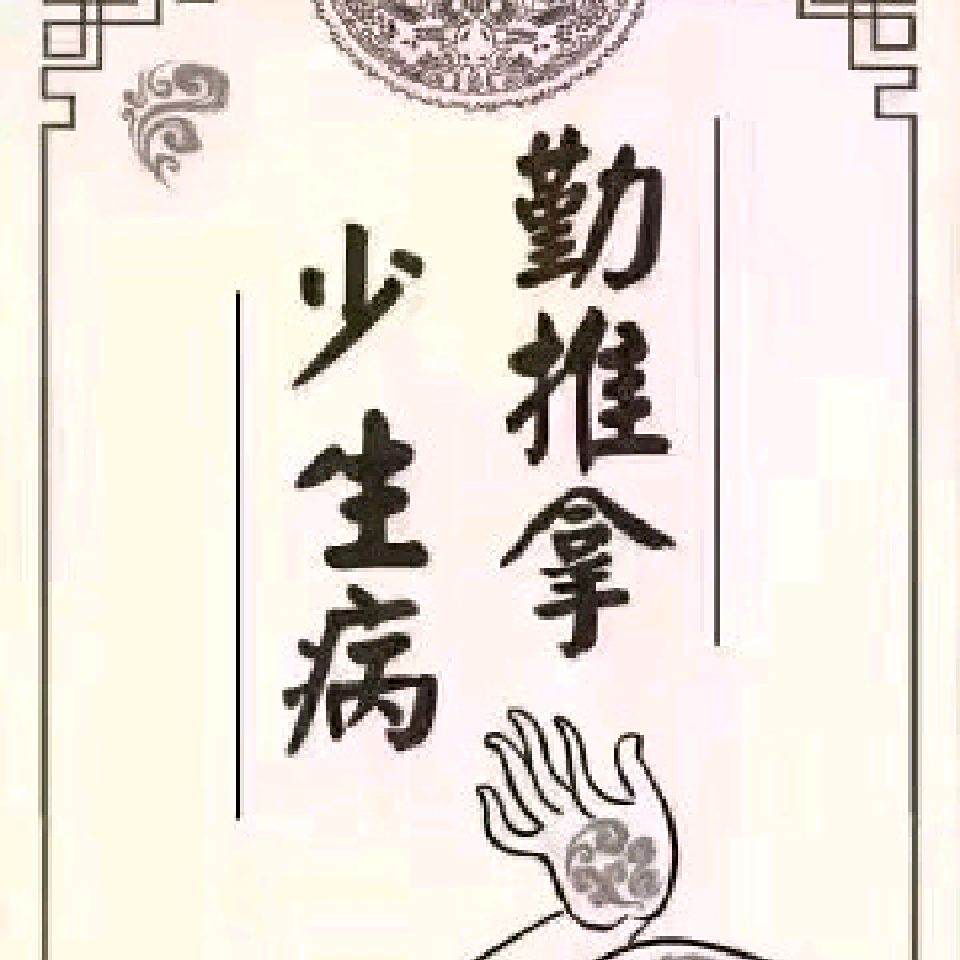 勤推拿
少生病